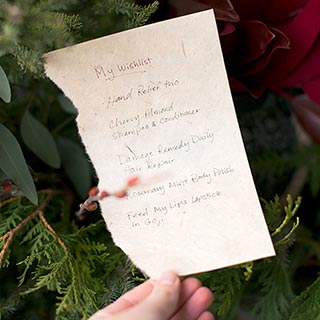 My Wishlist
Hand Relief trio
Cherry Almond
Shampoo & Conditioner
Damage Remedy Daily
Hair Repair
Rosemary Mint Body Polish
Feed My Lips Lipstick
in Goji